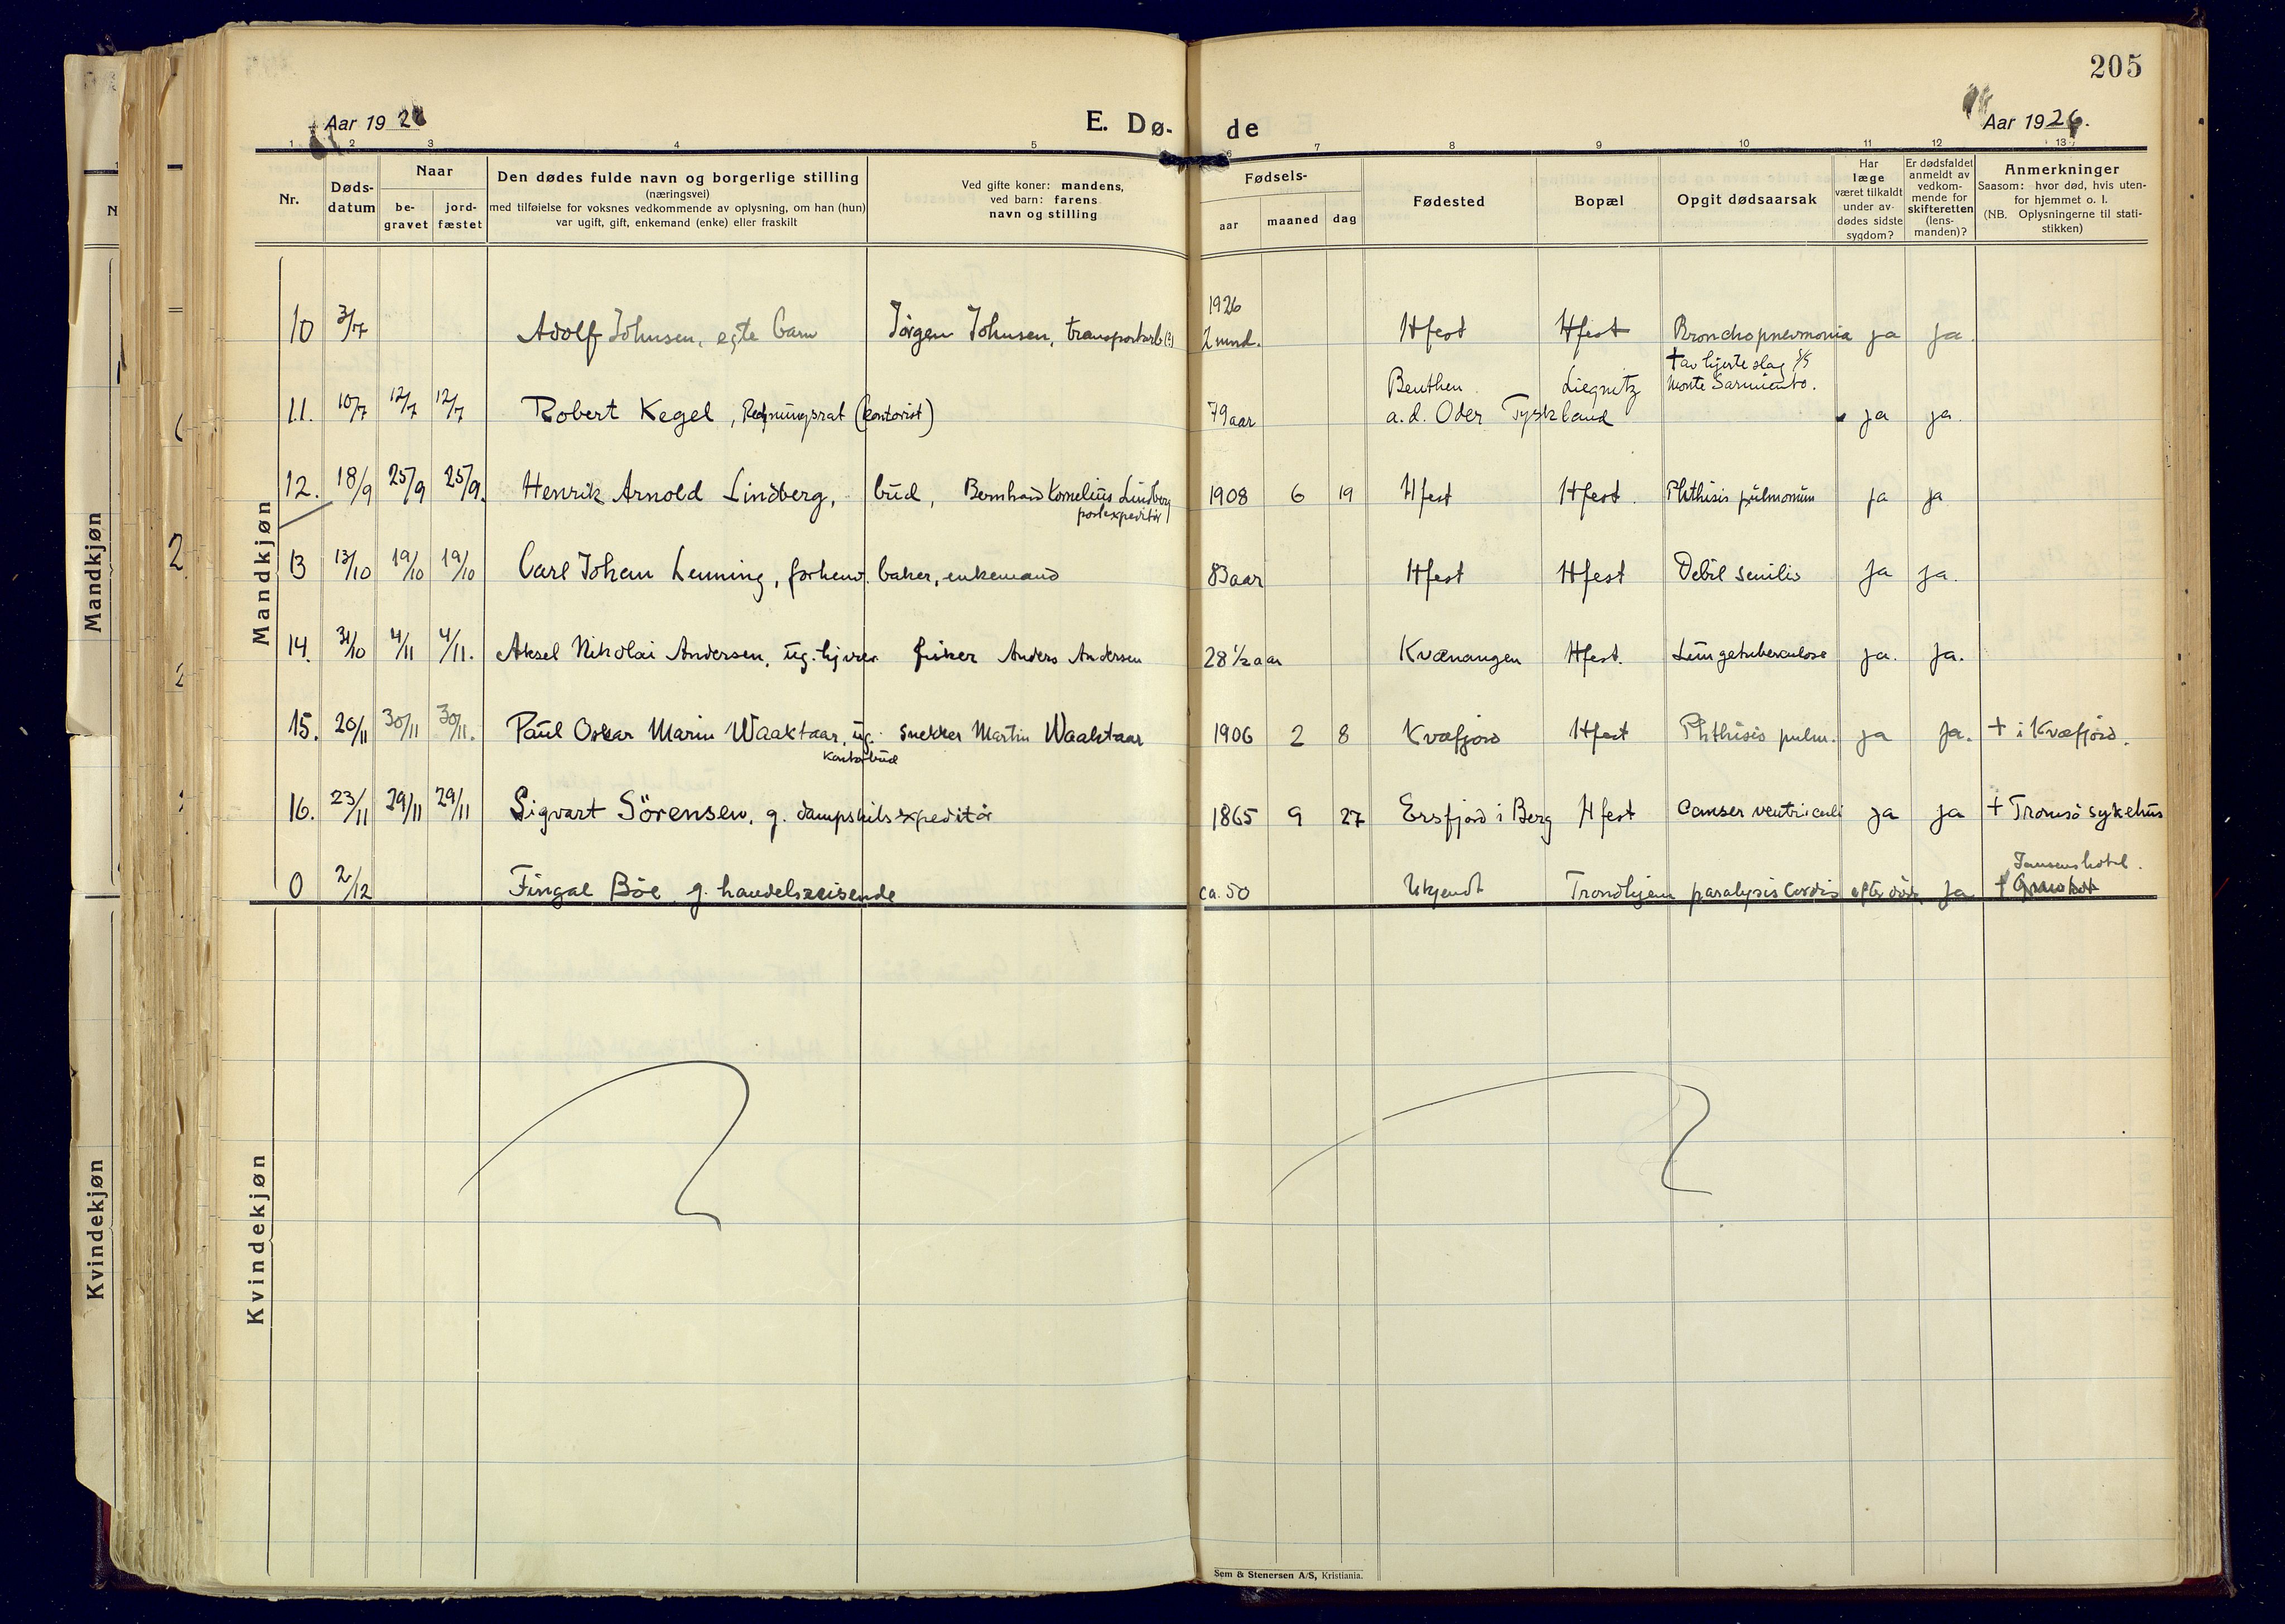 205
Aar 1926
E. Dø- de
Aar 1926.
1 2 3 4 5 6 7 8 9 10 11 12 13
Nr.
Døds-
datum
Naar
be-
gravet
jord-
fæstet
Den dødes fulde navn og borgerlige stilling
(næringsvei)
med tilføielse for voksnes vedkommende av oplysning, om han (hun)
var ugift, gift, enkemand (enke) eller fraskilt
Ved gifte koner: mandens,
ved barn: farens
navn og stilling
Fødsels-
aar maaned dag
Fødested
Bopæl
Opgit dødsaarsak
Har
læge
været tilkaldt
under av-
dødes sidste
sygdom?
Er dødsfaldet
anmeldt av
vedkom-
mende for
skifteretten
(lens-
manden)?
Anmerkninger
Saasom: hvor død, hvis uten-
for hjemmet o. l.
(NB. Oplysningerne til stati-
stikken)
Mandkjøn
1926
10 3/7 Adolf Johnsen, egte barn Jörgen Johnsen, transportarb(?) 2 mnd. Hfest Hfest Bronchopnevmonia ja ja.
Beuthen Liegnitz † av hjerteslag %s
Monte Sarmiento.
11. 10/7 12/7 12/7 Robert Kegel, Rechnungsrat (kontorist) 79 aar a.d. Oder Tyskland ja ja.
12. 18/9 25/9 25/9. Henrik Arnold Lindberg, bud, Bernhard Kornelius Lindberg 1908 6 19 Hfest Hfest. Phthisis pulmonum ja ja
postexpeditör
13 13/10 19/10 19/10 Carl Johan Lenning, forhenv. baker, enkemand 83 aar Hfest Hfest Debil senilis ja ja.
14. 31/10 4/11 4/11. Aksel Nikolai Andersen, ug. fisker Anders Andersen 28 1/2 aar Kvænangen Hfest. Lungetuberculose ja. ja.
15. 20/11 30/11 30/11. Paul Oskar Marin Waaktaar, ug. snekker Martin Waaktaar 1906 2 8 Kvæfjord Hfest Phthisis pulm. ja ja. † i Kvæfjord.
kontorbud
16. 23/11 29/11 29/11 Sigvart Sörensen, g. dampskibsexpeditör 1865 9 27 Ersfjord i Berg Hfest Canser ventriculi ja ja † Tromsö sykehus
Jensens hotel.
0 2/12 Fingal Böe g. handelsreisende ca. 50 Ukjendt Trondhjem paralysis cordis efter död ja † Grand hot
Kvindekjøn
Sem & Stenersen A/S, Kristiania.
Mandkjøn
Kvindekjøn